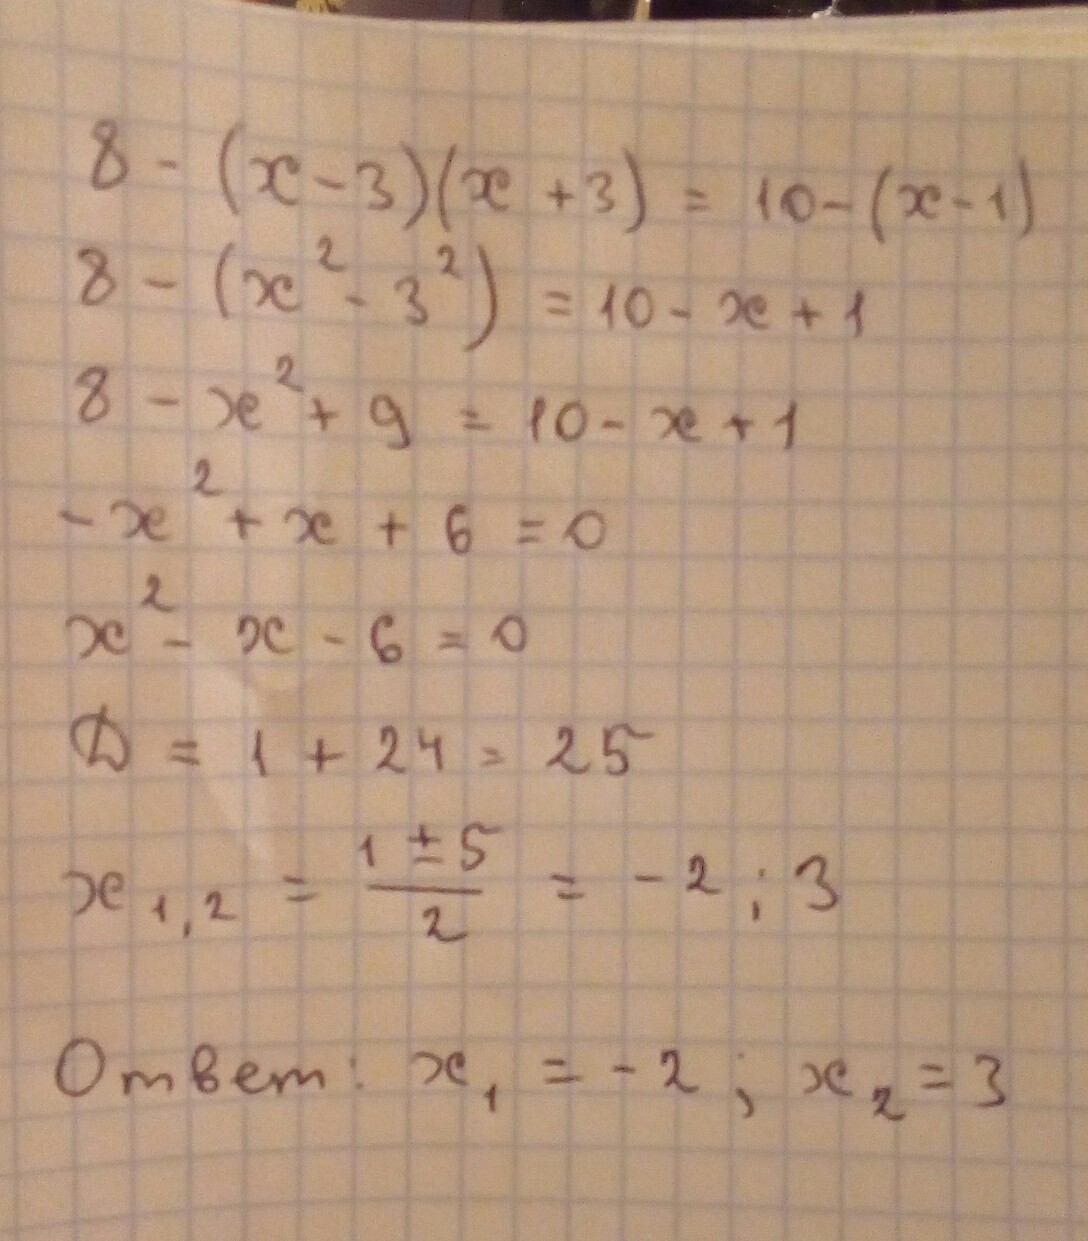 8 - (x - 3)(x + 3) = 10 - (x - 1)
8 - (x² - 3²) = 10 - x + 1
8 - x² + 9 = 10 - x + 1
- x² + x + 6 = 0
x² - x - 6 = 0
D = 1 + 24 = 25
x₁,₂ = (1 ± 5)/2 = - 2 ; 3
Ответ: x₁ = - 2 ; x₂ = 3